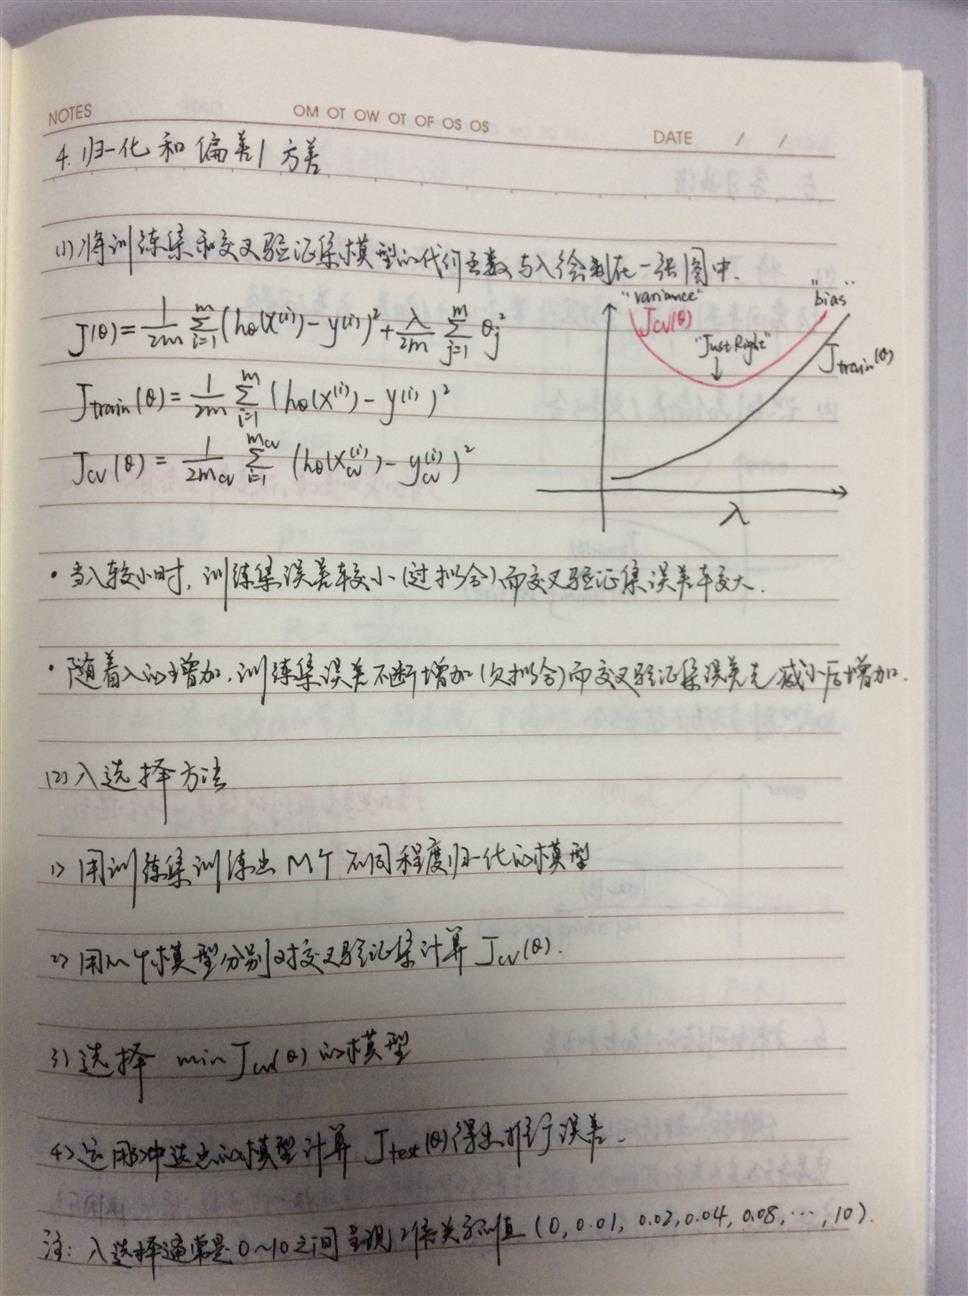 NOTES OM OT OW OT OF OS OS DATE / /
4. 归一化和偏差/方差
(1) 将训练集和交叉验证集模型的代价函数与λ绘制在一张图中.
J(θ) = 1/2m Σ_{i=1}^{m} (hθ(x^(i)) - y^(i))² + λ/2m Σ_{j=1}^{m} θ_j²
J_train(θ) = 1/2m Σ_{i=1}^{m} (hθ(x^(i)) - y^(i))²
J_cv(θ) = 1/2m_cv Σ_{i=1}^{m_cv} (hθ(x_cv^(i)) - y_cv^(i))²
"variance"
"bias"
J_cv(θ)
"Just Right"
J_train(θ)
λ
· 当λ较小时, 训练集误差较小(过拟合)而交叉验证集误差较大.
· 随着λ的增加, 训练集误差不断增加(欠拟合)而交叉验证集误差先减小后增加.
(2) λ选择方法
1) 用训练集训练出M个不同程度归一化的模型
2) 用M个模型分别对交叉验证集计算J_cv(θ).
3) 选择 min J_cv(θ) 的模型
4) 运用3)中选出的模型计算 J_test(θ)得出推行误差.
注: λ选择通常是0~10之间呈现2倍关系的值 (0, 0.01, 0.02, 0.04, 0.08, ⋯, 10).